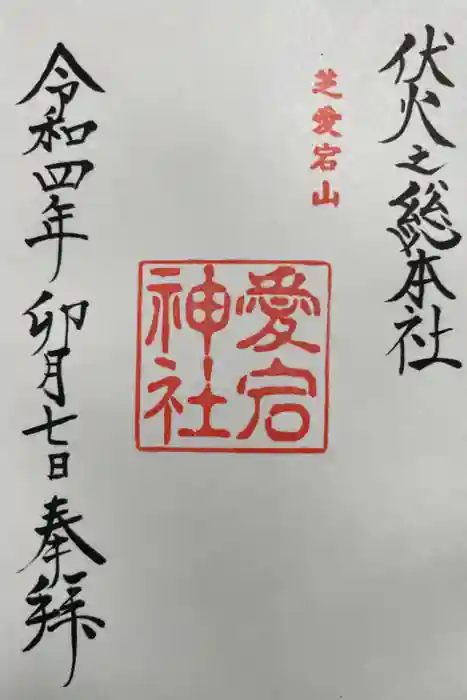 伏火之総本社
芝愛宕山
愛宕
神社
令和四年卯月七日奉拝